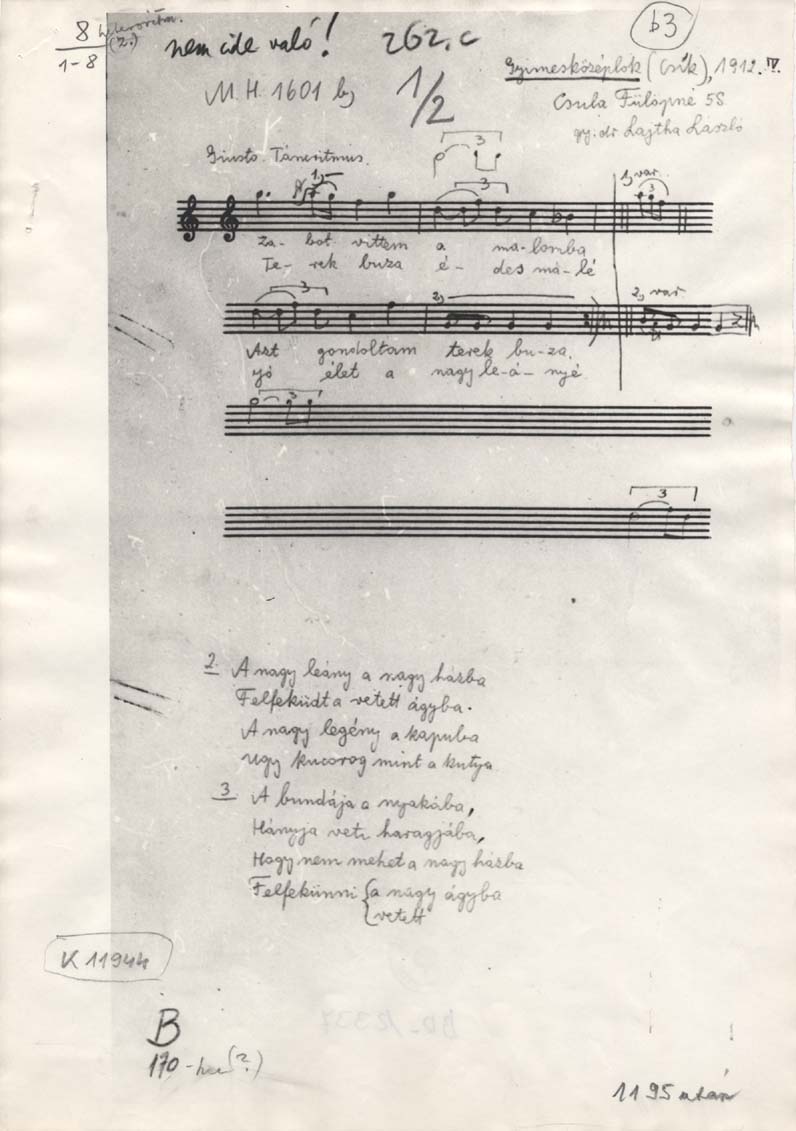 8
(2.)
1-8
nem ide való! 262.c
b3
Gyimesközéplok (Csík), 1912. IV.
M. H. 1601 b) 1/2
Csula Fülöpné 58
gy. dr Lajtha László
Giusto. Táncritmus.
3
1) 3 1) var. 3
Za- bot vittem a ma-lomba
Te- rek buza é- des má-lé
3 2) 2) var.
Azt gondoltam terek bu-za.
Jó élet a nagy le-á-nyé
3
3
2. A nagy leány a nagy házba
Felfeküdt a vetett ágyba.
A nagy legény a kapuba
Ugy kucorog mint a kutya
3 A bundája a nyakába,
Hányja veti haragjába,
Hogy nem mehet a nagy házba
Felfekünni { a nagy ágyba
vetett
K 11944
B
170 - (?)
1195 után